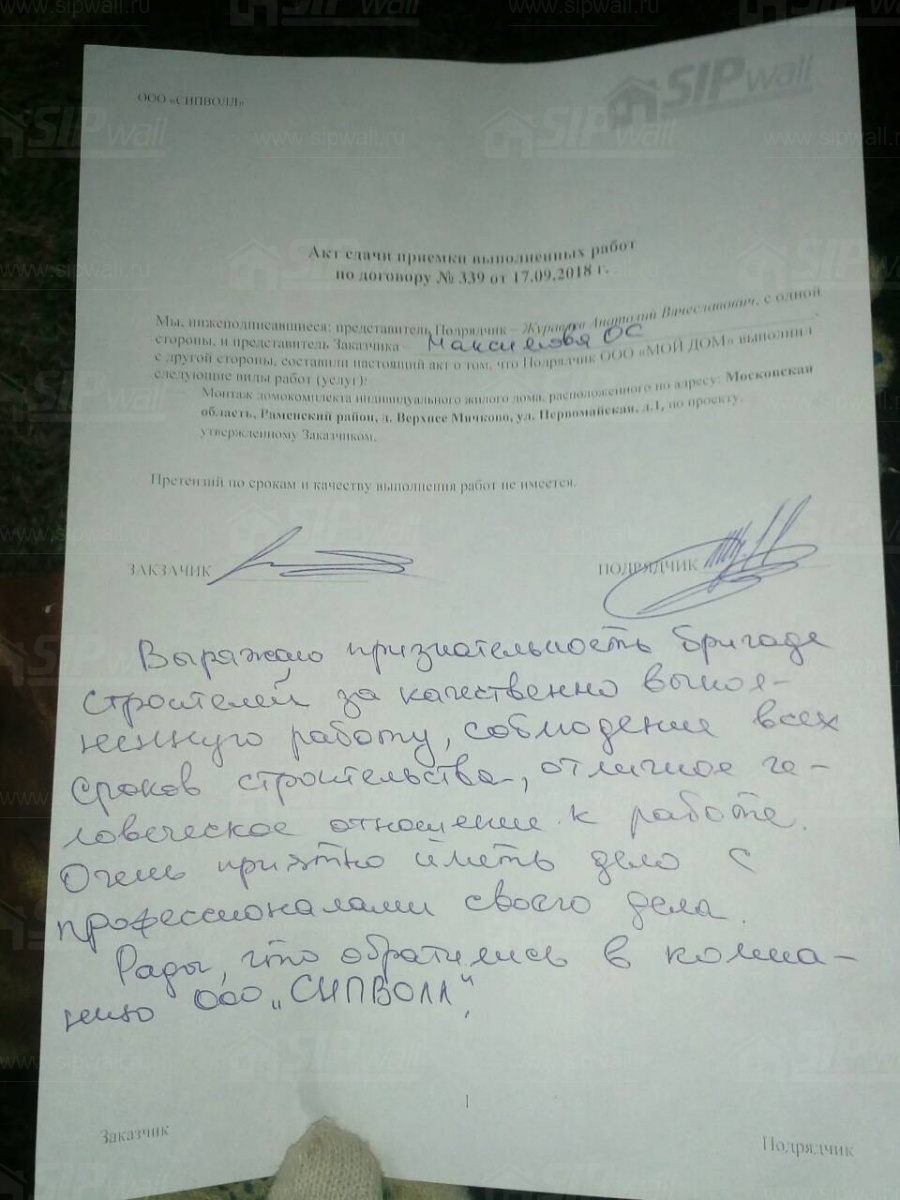 ООО «СИПВОЛЛ»
SIPwall
www.sipwall.ru
Акт сдачи приемки выполненных работ
по договору № 339 от 17.09.2018 г.
Мы, нижеподписавшиеся: представитель Подрядчик – Журавка Анатолий Вячеславович, с одной
стороны, и представитель Заказчика – Максимова ОС
с другой стороны, составили настоящий акт о том, что Подрядчик ООО «МОЙ ДОМ» выполнил
следующие виды работ (услуг):
- Монтаж домокомплекта индивидуального жилого дома, расположенного по адресу: Московская
область, Раменский район, д. Верхнее Мячково, ул. Первомайская, д.1, по проекту,
утвержденному Заказчиком.
Претензий по срокам и качеству выполнения работ не имеется.
ЗАКЗАЧИК
ПОДРЯДЧИК
Выражаю признательность бригаде
строителей за качественно выпол-
ненную работу, соблюдение всех
сроков строительства, отличное че-
ловеческое отношение к работе.
Очень приятно иметь дело с
профессионалами своего дела.
Рады, что обратились в компа-
нию ООО „СИПВОЛЛ".
1
Заказчик
Подрядчик